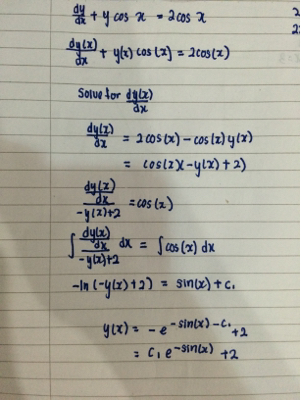 dy/dx + y cos x = 2cos x
dy(x)/dx + y(x) cos(x) = 2cos(x)
Solve for dy(x)/dx
dy(x)/dx = 2cos(x) - cos(x) y(x)
= cos(x)(-y(x) + 2)
(dy(x)/dx)/(-y(x)+2) = cos(x)
∫ (dy(x)/dx)/(-y(x)+2) dx = ∫cos(x) dx
-ln(-y(x)+2) = sin(x) + c₁
y(x) = -e^(-sin(x)-c₁) +2
= c₁ e^(-sin(x)) +2